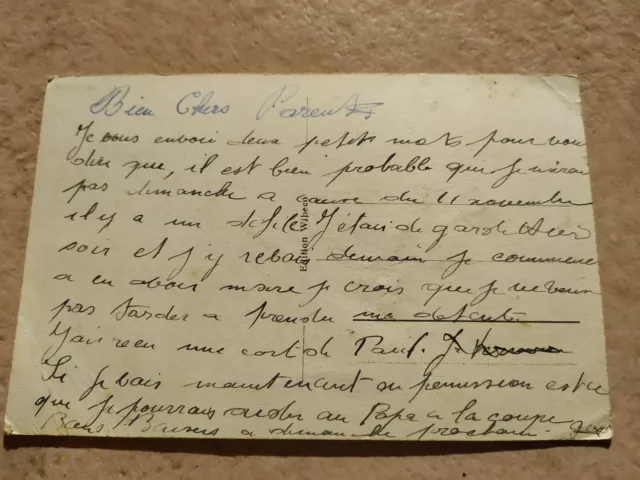 Bien Chers Parents
Je vous envoie deux petits mots pour vous
dire que, il est bien probable que je n'irai
pas dimanche a cause du 11 novembre
il y a un défilé J'étais de garde hier
soir et j'y rebais demain je commence
a en avoir mare je crois que je ne veux
pas tarder a prendre ma detente
J'ai reçu une carte de Paul.
Si je bais maintenant en permission est ce
que je pourrais aider au Papa a la coupe
Bons Baisers a dimanche prochain.
Edition Wibeco